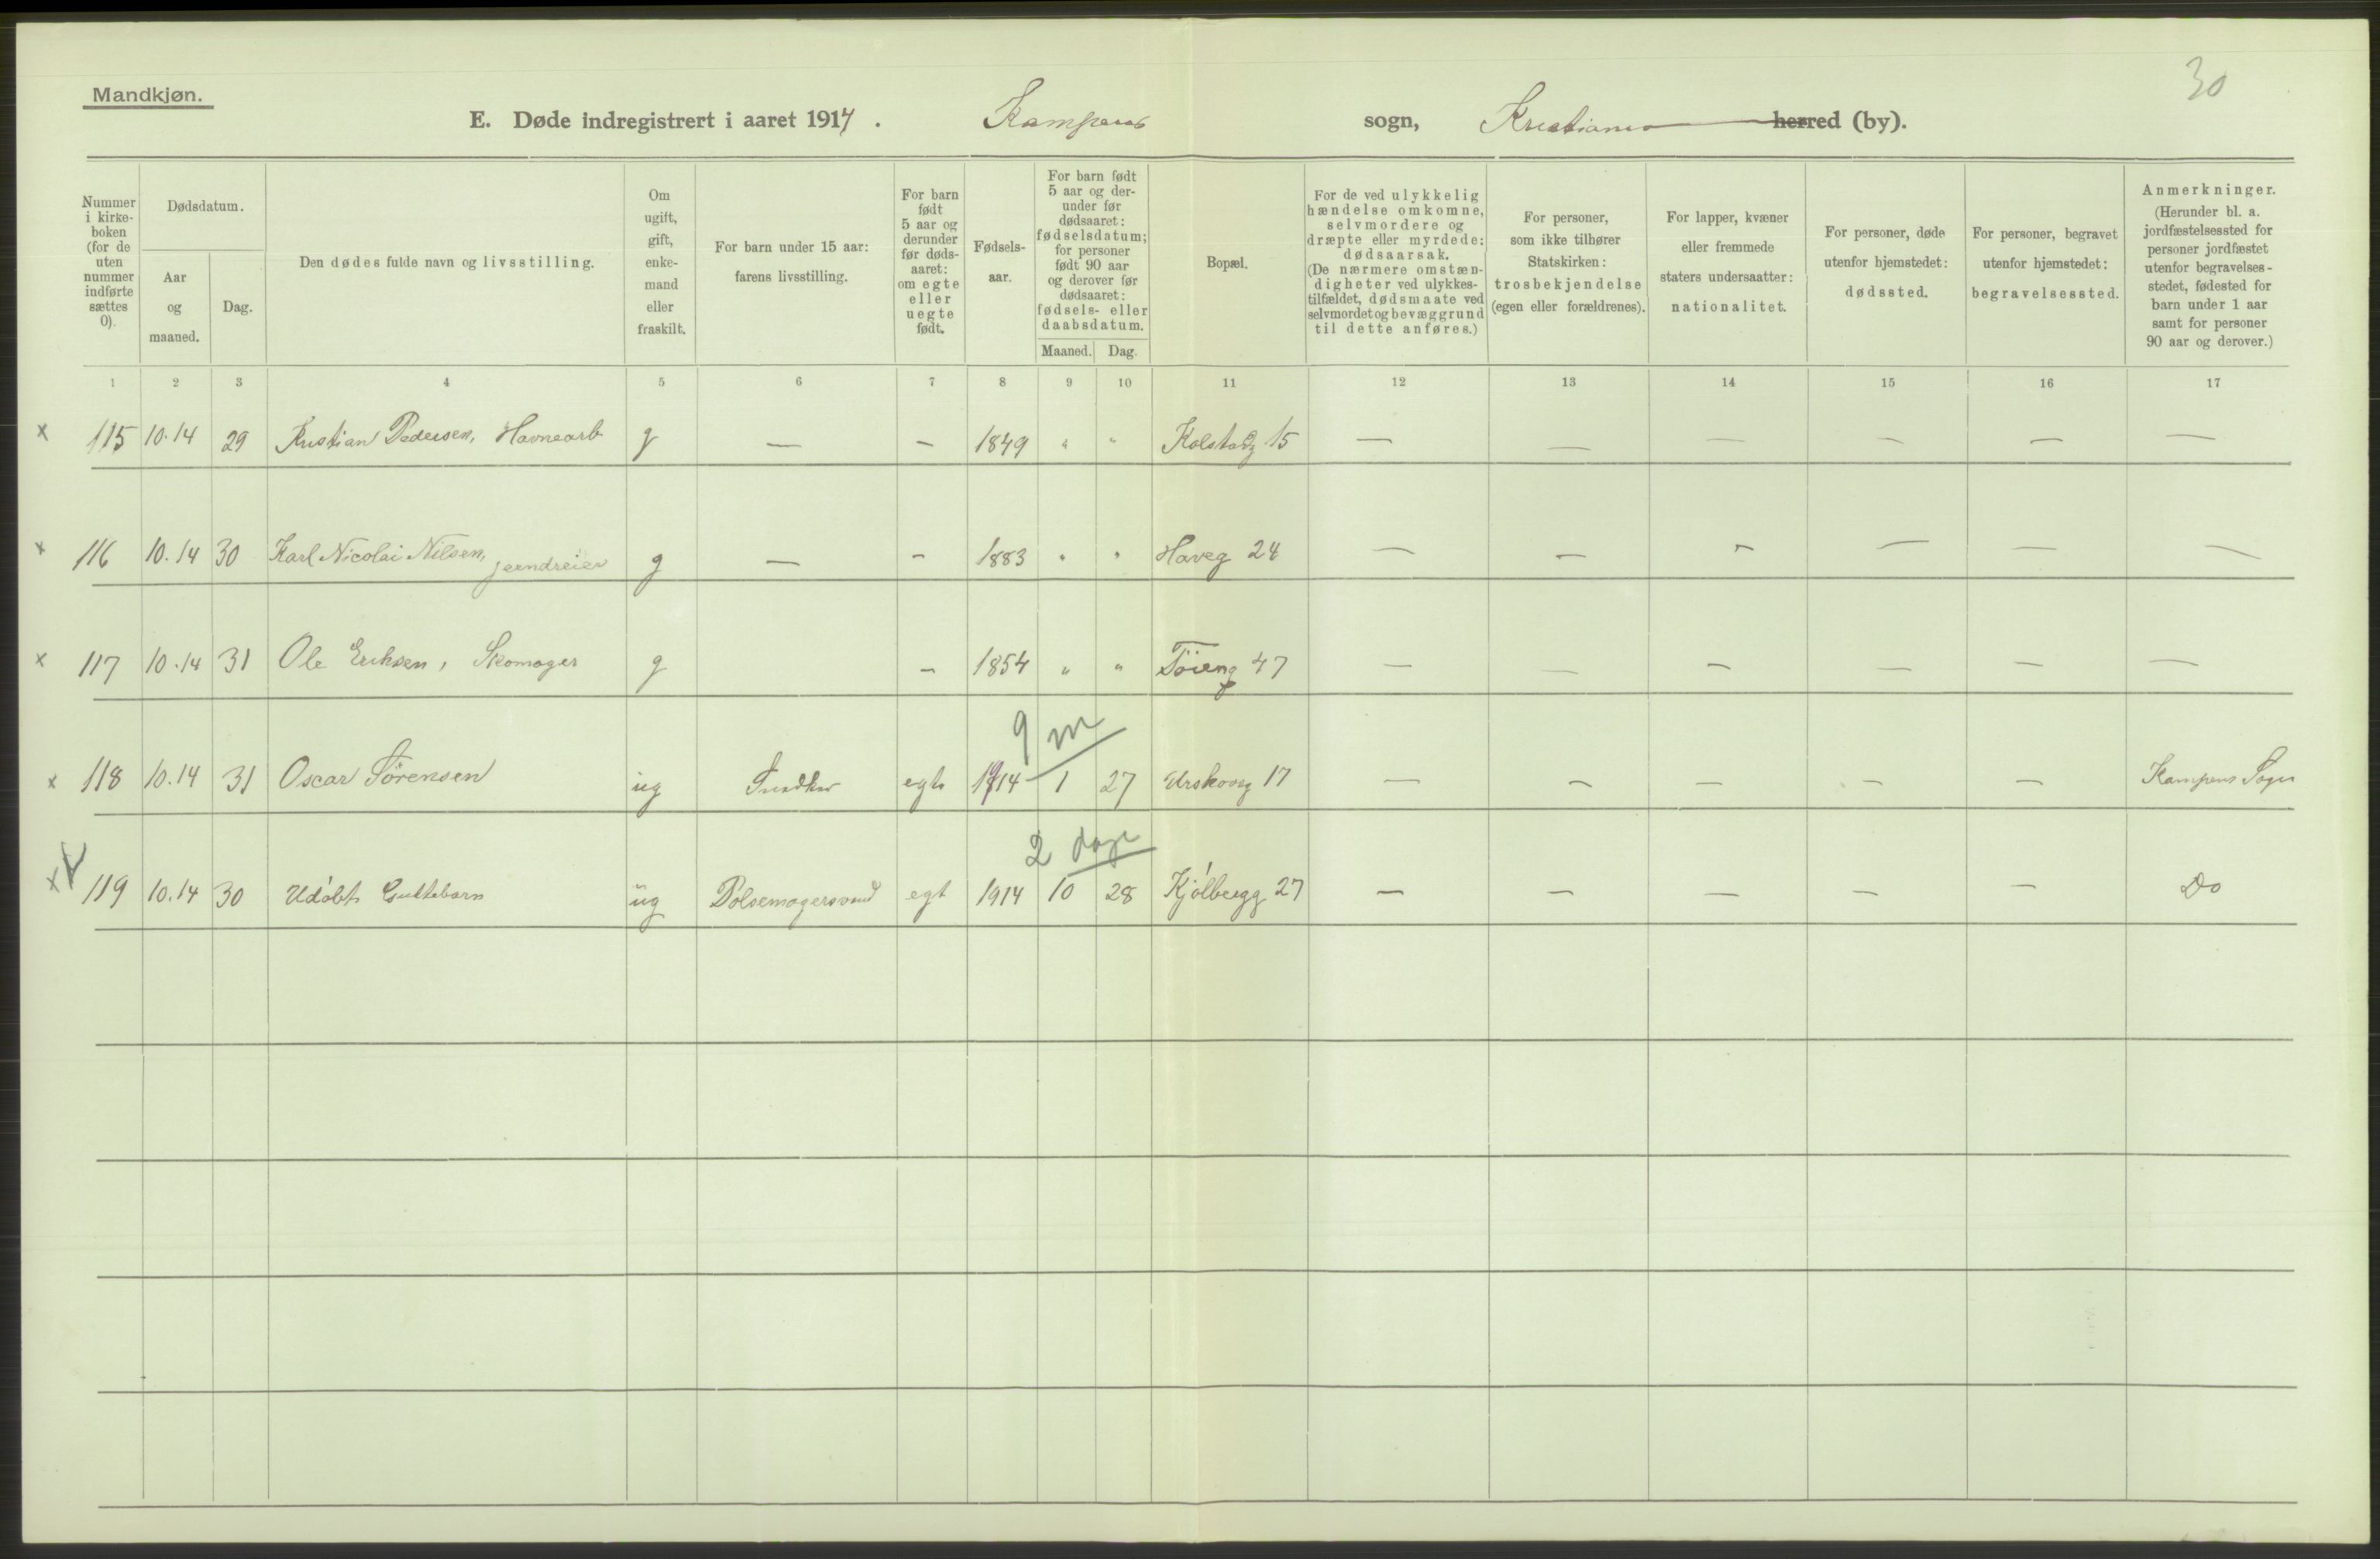 30
Mandkjøn.
E. Døde indregistrert i aaret 1914. Kampens sogn, Kristiania herred (by).
Nummer i kirke-boken (for de uten nummer indførte sættes 0).
Dødsdatum.
Aar og maaned.
Dag.
Den dødes fulde navn og livsstilling.
Om ugift, gift, enke-mand eller fraskilt.
For barn under 15 aar: farens livsstilling.
For barn født 5 aar og derunder før døds-aaret: om egte eller uegte født.
Fødsels-aar.
For barn født 5 aar og der-under før dødsaaret: fødselsdatum; for personer født 90 aar og derover før dødsaaret: fødsels- eller daabsdatum.
Maaned. Dag.
Bopæl.
For de ved ulykkelig hændelse omkomne, selvmordere og dræpte eller myrdede: dødsaarsak. (De nærmere omstæn-digheter ved ulykkes-tilfældet, dødsmaate ved selvmordet og bevæggrund til dette anføres.)
For personer, som ikke tilhører Statskirken: trosbekjendelse (egen eller forældrenes).
For lapper, kvæner eller fremmede staters undersaatter: nationalitet.
For personer, døde utenfor hjemstedet: dødssted.
For personer, begravet utenfor hjemstedet: begravelsessted.
Anmerkninger. (Herunder bl. a. jordfæstelsessted for personer jordfæstet utenfor begravelses-stedet, fødested for barn under 1 aar samt for personer 90 aar og derover.)
1 2 3 4 5 6 7 8 9 10 11 12 13 14 15 16 17
x 115 10.14 29 Kristian Pedersen, Havnearb. g — — 1849 " " Kolstadg 15 — — — — — —
x 116 10.14 30 Karl Nicolai Nilsen, jerndreier g — - 1883 " " Haveg 24 — — — — — —
x 117 10.14 31 Ole Eriksen, Skomager g - 1854 " " Töieng 47 — — — — — —
9 m
x 118 10.14 31 Oscar Sörensen ug Snedker egte 1914 1 27 Urskovsg 17 — — — — — Kampens Sogn
2 dage
x 119 10.14 30 Udöbt Guttebarn ug Pölsemagersvend egt 1914 10 28 Kjölbergg 27 — — — — — Do